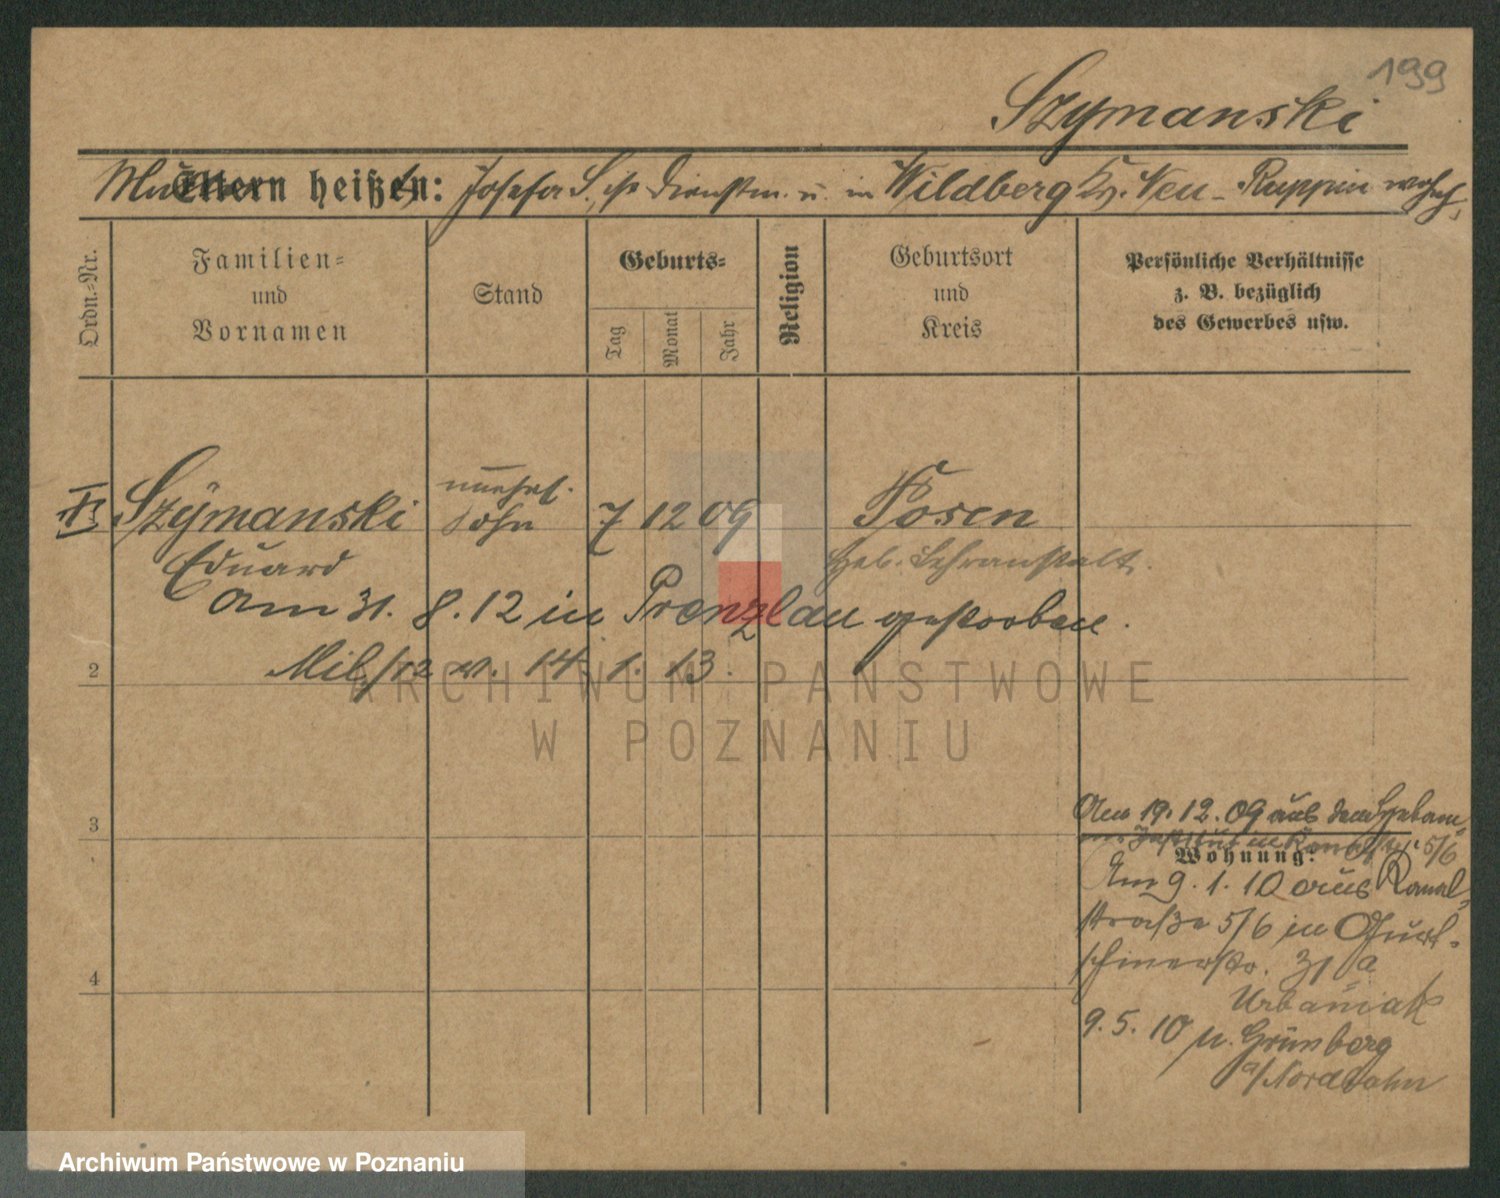 199
Szymanski
Mutter Eltern heißen: Josefa S., ist Dienstm. u. in Wildberg Kr. Neu-Ruppin wohnh.
Ordn.-Nr.
Familien-
und
Vornamen
Stand
Geburts-
Tag
Monat
Jahr
Religion
Geburtsort
und
Kreis
Persönliche Verhältnisse
z. B. bezüglich
des Gewerbes usw.
unehel.
Szymanski Sohn 7 12 09 Posen
Eduard Heb. Lehranstalt.
am 31. 8. 12 in Prenzlau gestorben.
2 Mil/12 v. 14. 1. 13.
3
Am 19. 12. 09 aus dem Hebam-
Institut in 5/6
Wohnung:
Am 9. 1. 10 aus Kanal-
straße 5/6 in Gurt-
schinerstr. 31 a
Urbaniak
4
9. 5. 10 n. Grünberg
a/Nordbahn
ARCHIWUM PAŃSTWOWE
W POZNANIU
Archiwum Państwowe w Poznaniu